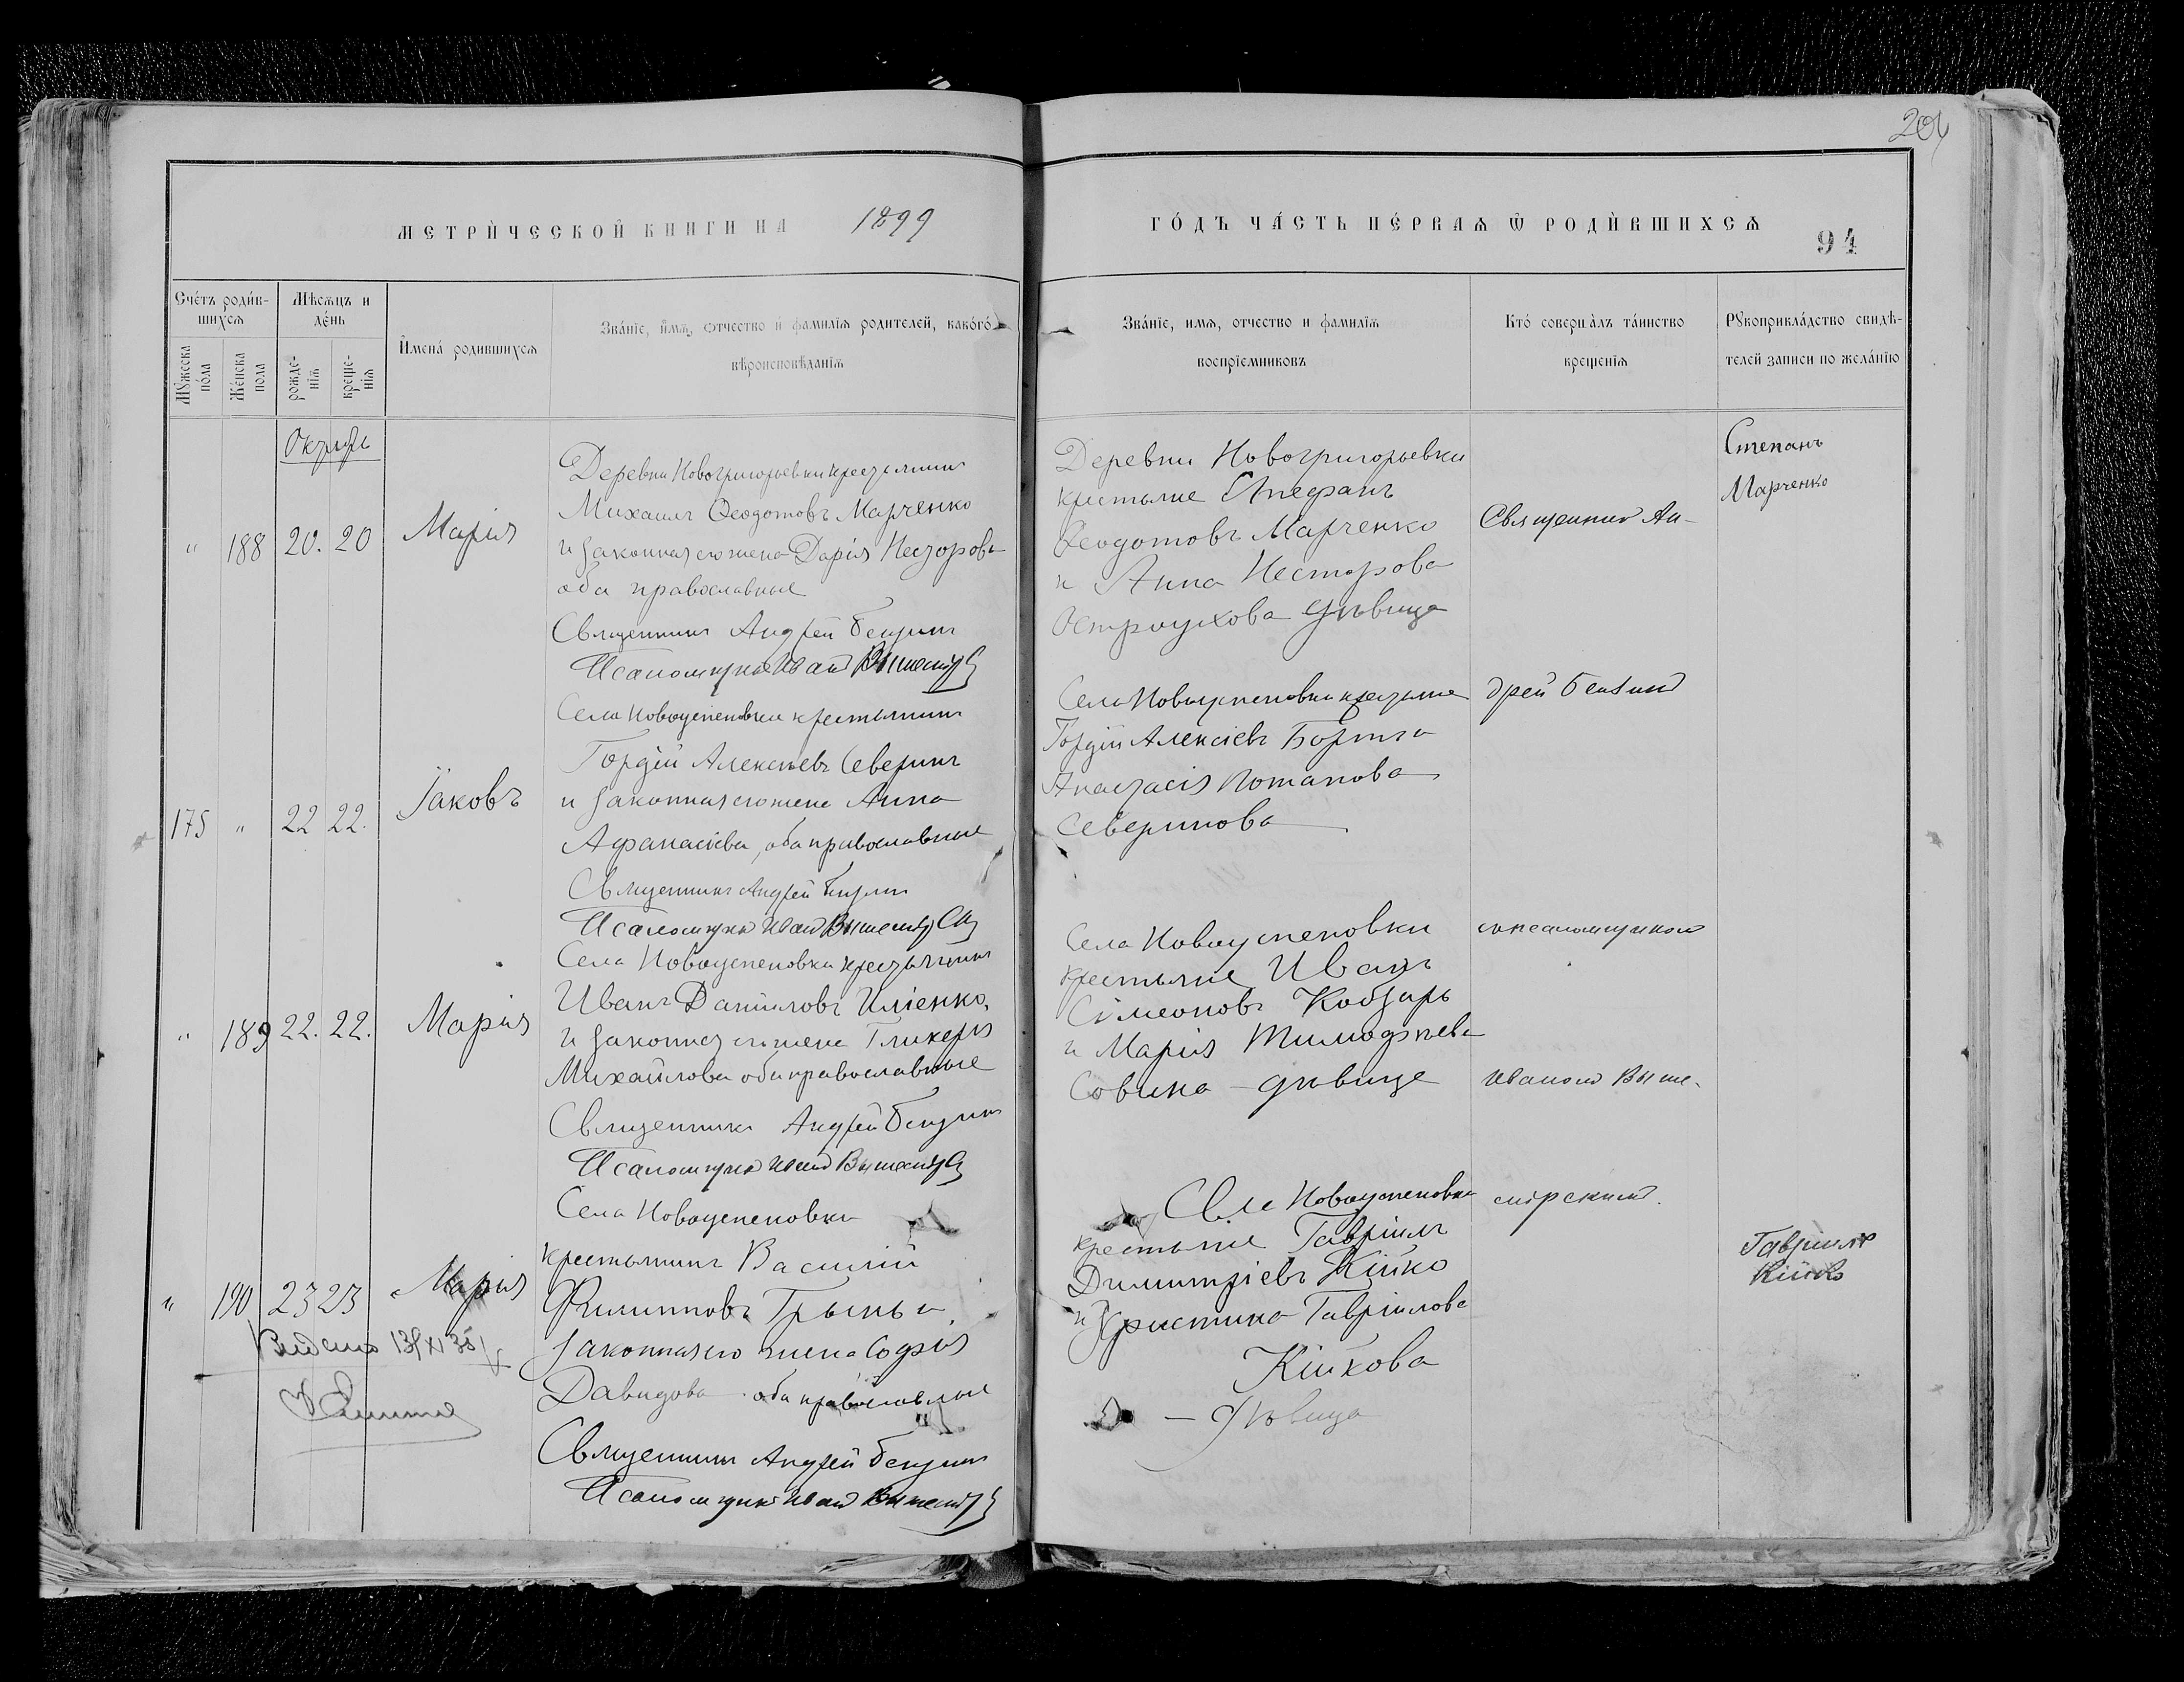 204
МЕТРИ́ЧЕСКОЙ КНИГИ НА 1899
ГО́ДЪ ЧА́СТЬ ПЕ́РВАѦ Ѡ РОДИ́ВШИХСѦ
94
Сче́тъ роди́в-
шихсѧ
Мѣсѧцъ и
де́нь
Мꙋжеска
по́ла
Же́нска
пола
рожде-
нїѧ
креще-
нїѧ
Имена́ родившихсѧ
Зва́нїе, и́мѧ, ѻтчество и фамилїѧ родителей, како́гѡ
вѣроисповѣданїѧ
Зва́нїе, имѧ, отчество и фамилїѧ
воспрїемниковъ
Кто́ соверша̀лъ та́инство
крещенїѧ
Рꙋкоприкла́дство свидѣ-
телей записи по жела́нїю
Октябрь
" 188 20. 20 Марія
Деревни Новогригорьевки крестьянинъ
Михаилъ Ѳеодотовъ Марченко
и законная его жена Дарія Несторова
оба православные
Священникъ Андрей
Псаломщикъ Иван
Деревни Новогригорьевки
крестьяне Стефанъ
Ѳеодотовъ Марченко
и Анна Несторова
Остроухова дѣвица
Священник Ан-
Степанъ
Марченко
175 " 22 22. Іаковъ
Села Новоуспеновки крестьянинъ
Гордій Алексѣевъ Северинъ
и законная его жена Анна
Афанасіева, оба православные
Священникъ Андрей
Псаломщикъ Иван
Села Новоуспеновки крестьяне
Гордій Алексіевъ
Анастасія Потапова
Северинова
дрей
" 189 22. 22. Марія
Села Новоуспеновки крестьянинъ
Иванъ Даніиловъ
и законная его жена Гликерія
Михайлова оба православные
Священникъ Андрей
Псаломщикъ Иван
Села Новоуспеновки
крестьяне Иванъ
Симеоновъ Кобзарь
и Марія Тимоѳѣева
Совина - дѣвица
съ псаломщикомъ
Иваномъ Выше-
" 190 23 23 Марія
Села Новоуспеновки
крестьянинъ Василій
Филипповъ Грынь и
законная его жена Софія
Давидова оба православные
Священникъ Андрей
Псаломщикъ Иван
Села Новоуспеновки
крестьяне Гавріилъ
Димитріевъ Кійко
и Христина Гавріилова
Кійкова
- дѣвица
мірскимъ.
Гавриилъ
Кійко
13/XI 35